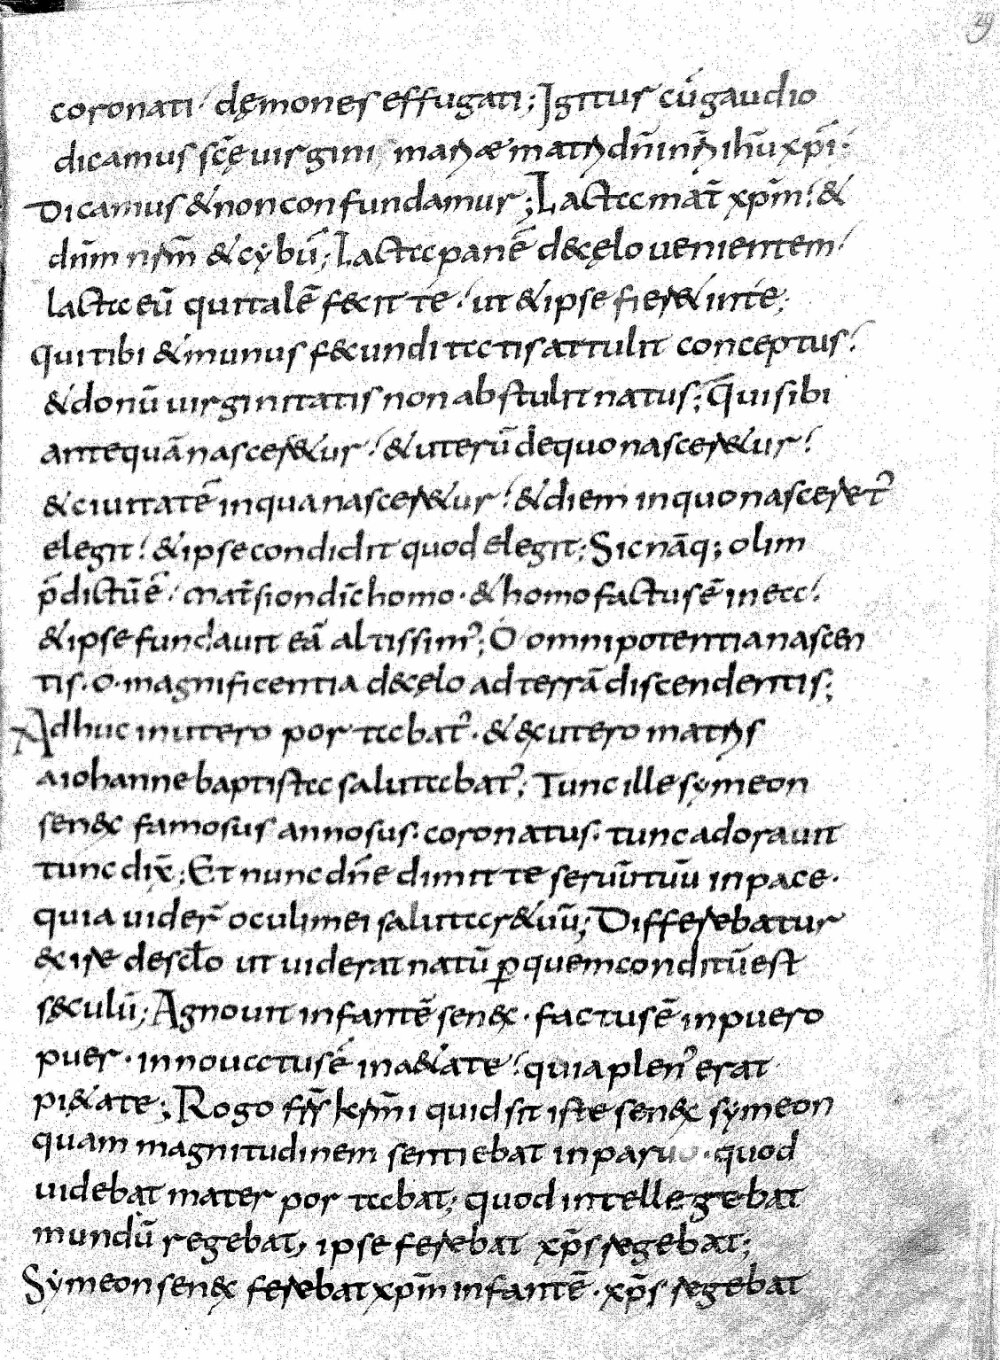 29
coronati· dęmones effugati; Igitur cū gaudio
dicamus scę̄ uirgini mariæ matri dn̄i nr̄i ihū xp̄i·
Dicamus & non confundamur; Lacta mat̄ xp̄m· &
dn̄m nrm̄ & cybū; Lacta panē de cęlo uenientem·
lacta eū qui talē fecit te· ut & ipse fier& in te;
qui tibi & munus fecunditatis attulit conceptus·
& donū uirginitatis non abstulit natus; Qui sibi
antequā nascer&ur· & uterū de quo nascer&ur·
& ciuitatē in qua nascer&ur· & diem in quo nasceret᾽
elegit· & ipse condidit quod elegit; Sic nāq; olim
p̄dictū ē· mat̄ sion dīc homo· & homo factus ē in ea·
& ipse fundauit eā altissim᾽; O omnipotentia nascen
tis· o· magnificentia de cęlo ad terrā discendentis;
Adhuc in utero portabat᾽· & ex utero matris
a iohanne baptista salutabat᾽; Tunc ille symeon
senex famosus annosus· coronatus· tunc adorauit
tunc dix̄; Et nunc dn̄e dimitte seruū tuū in pace·
quia uider̄ oculi mei salutar& uū; Differebatur
exire de sclo ut uiderat natū p quem conditū est
sęculū; Agnouit infantē senex· factus ē in puero
puer· innouatus ē in a&ate· quia plen᾽ erat
pi&ate; Rogo frs̄ krm̄i quid sit iste senex symeon
quam magnitudinem sentiebat in paruo· quod
uidebat mater portabat; quod intellegebat
mundū regebat, ipse ferebat xp̄s regebat;
Symeon senex ferebat xp̄m infantē· xp̄s regebat